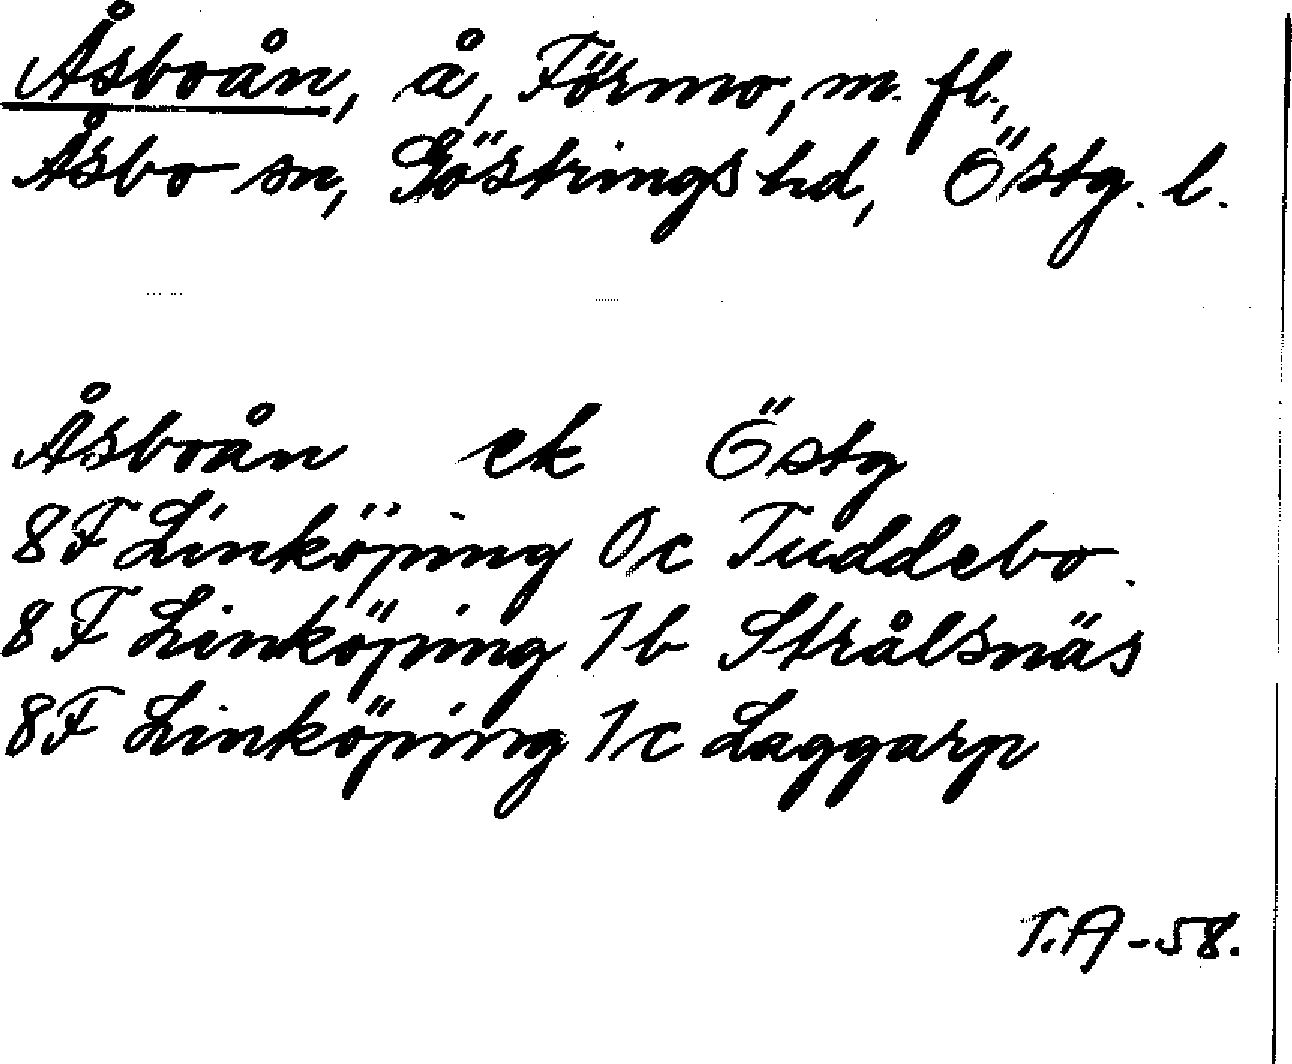 Åsboån, å, Förmo, m. fl.,
Åsbo sn, Göstrings hd, Östg. l.
Åsboån ek Östg
8F Linköping 0c Tuddebo.
8F Linköping 1b Strålsnäs
8F Linköping 1c Laggarp
T.A -58.